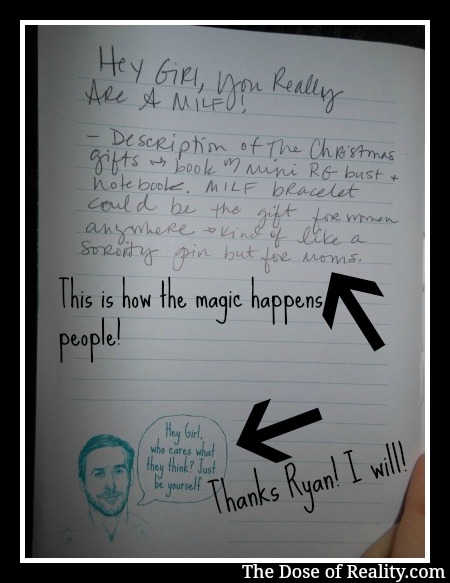 Hey Girl, You Really
Are A MILF!
- Description of The Christmas
gifts → book w/ mini RG bust +
notebook. MILF bracelet
could be the gift for women
anywhere → kind of like a
sorority pin but for moms.
This is how the magic happens
people!
Hey Girl,
who cares what
they think? Just
be yourself.
Thanks Ryan! I will!
The Dose of Reality.com